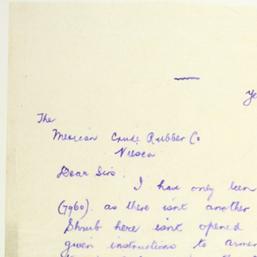 The
Mexican Crude Rubber Co
Viesca
Dear Sirs.
I have only been
(7960). as there isn't another
Shrub here isn't opened
given instructions to